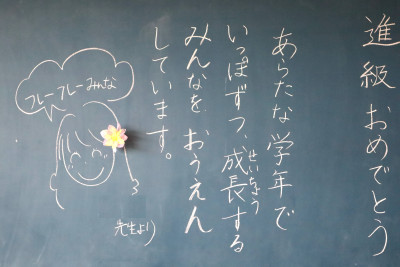 進級おめでとう
あらたな学年で
いっぽずつ、成長する
せいちょう
みんなを おうえん
しています。
フレーフレーみんな
先生より